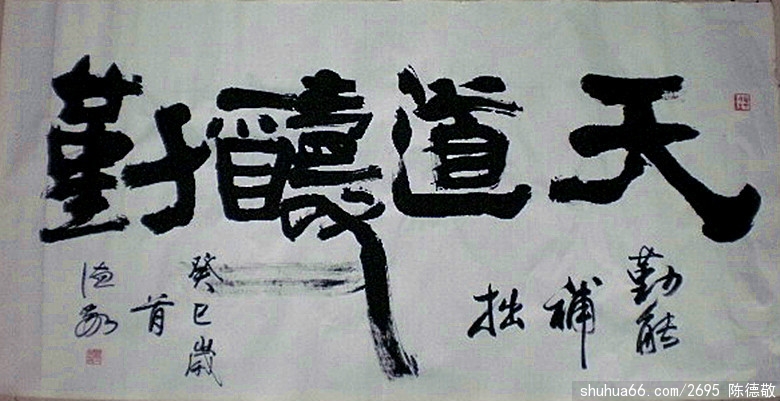 天道酬勤
勤能
補
拙
癸巳歲
首
德敬
shuhua66.com/2695 陈德敬